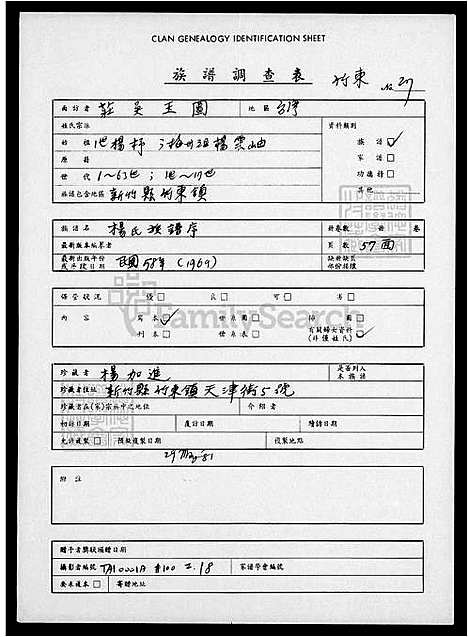 CLAN GENEALOGY IDENTIFICATION SHEET
族譜調查表 竹東 No 27
面訪者 莊吳玉圖 地區 台灣
姓氏宗派 資料類別
始祖 1世楊杼；梅州祖楊雲岫 族譜 ✓
原籍 家譜
世代 1～63世；1世～19世 功德簿
族譜包含地區 新竹縣竹東鎮 其他
族譜名 楊氏族譜序 冊卷數 冊 卷
最新版本編纂者 頁數 57面
最新出版年份或手稿日期 民國58年(1969) 缺冊缺頁部份揭櫫
保管狀況 優 良 可 劣
內容 寫本 ✓ 世系圖 序圖
刊本 世系表 有關婦女資料(非僅姓氏)
FamilySearch
珍藏者 楊加進 是否列入本族譜
珍藏者住址 新竹縣竹東鎮天津街5號
珍藏者在(家)宗族中之地位 介紹者
初訪日期 復訪日期 續訪日期
允許複製 預約複製日期 複製地點
29 May 81
附註
贈予者獎狀頒贈日期
攝影者編號 TA10001A #100 二.18 家譜學會編號
要求複本 寄贈地址